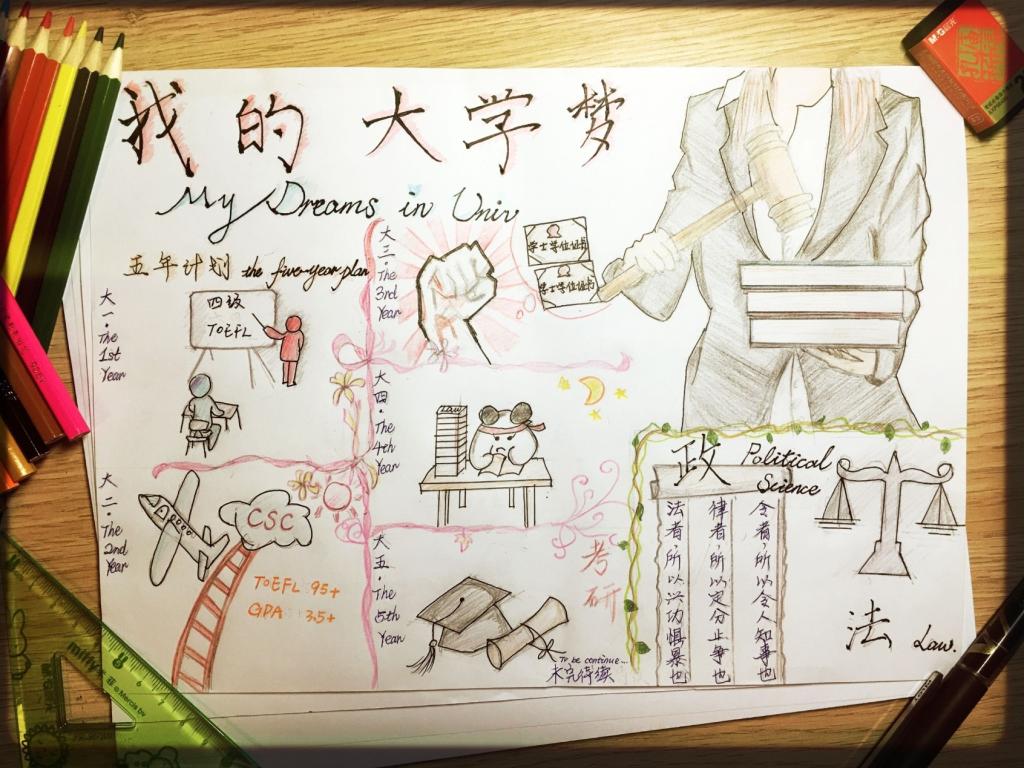 我的大学梦
My Dreams in Univ
五年计划 the five-year plan
大一·The 1st Year
四级
TOEFL
大二·The 2nd Year
CSC
TOEFL 95+
GPA 3.5+
大三·The 3rd Year
学士学位证书
学士学位证书
大四·The 4th Year
Law
大五·The 5th Year
考研
To be continue...
未完待续
政 Political Science
法者，所以兴功惧暴也
律者，所以定分止争也
令者，所以令人知事也
法 Law.
M&G
miffy